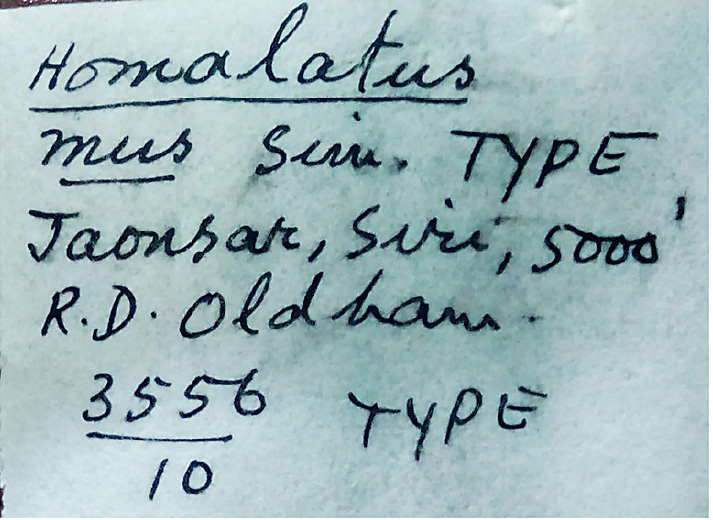 Homalatus
mus Sim. TYPE
Jaonsar, Siri, 5000'
R.D. Oldham.
3556 TYPE
10